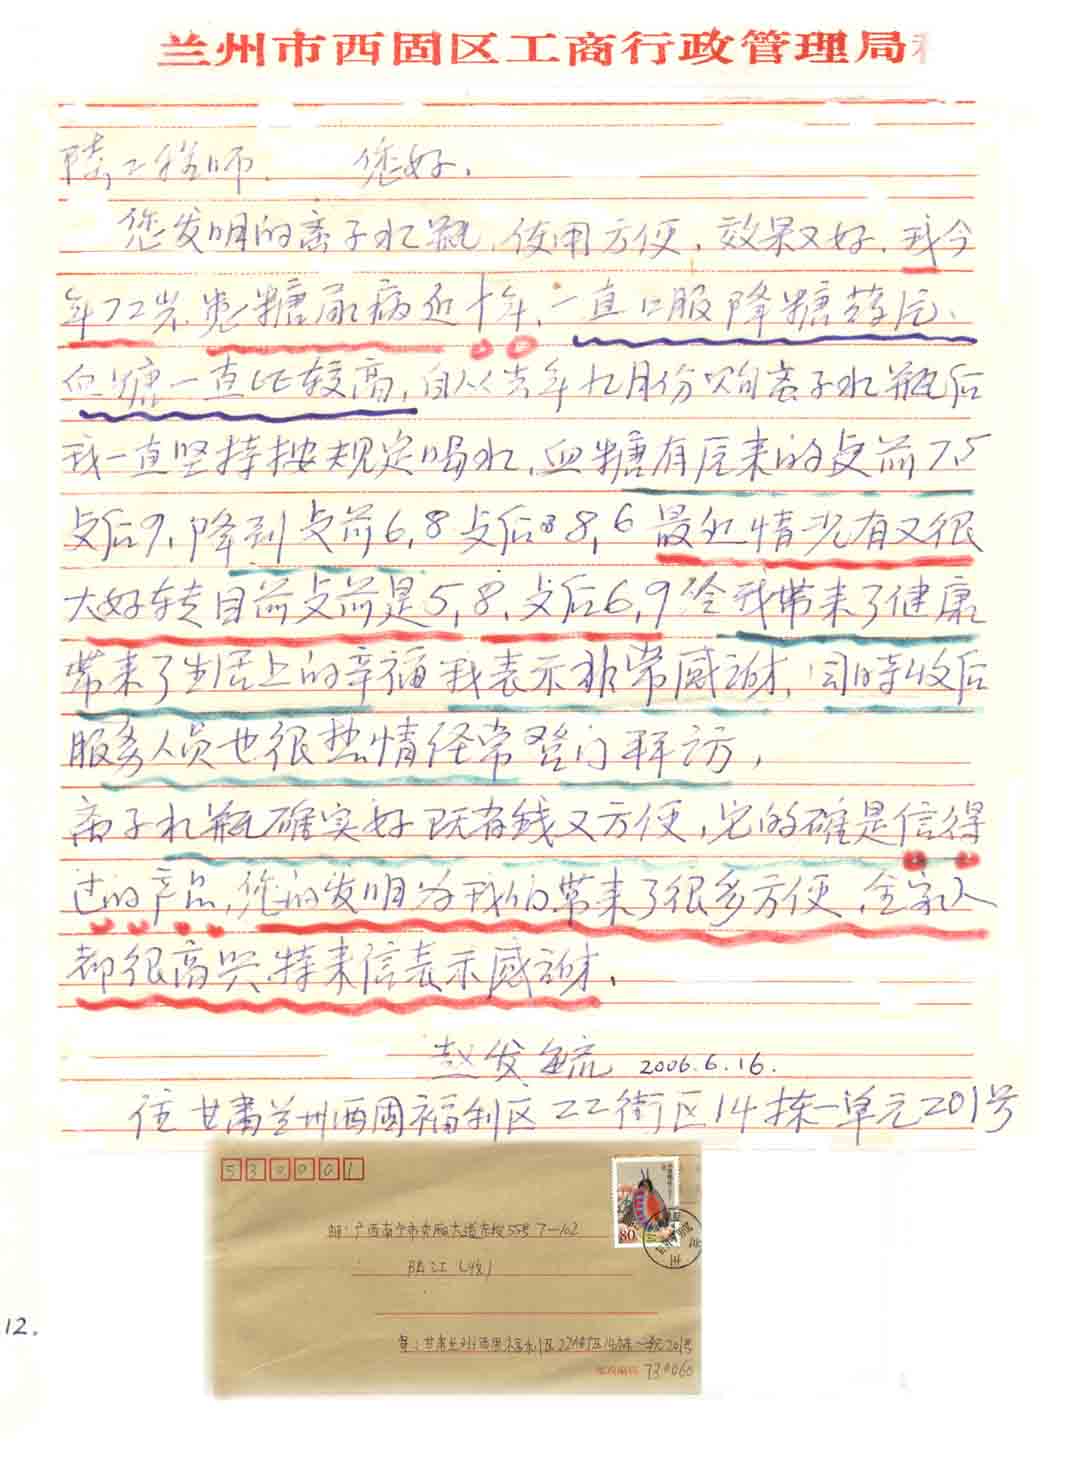 兰州市西固区工商行政管理局
陆工程师. 您好.
您发明的离子水瓶,使用方便,效果又好,我今
年72岁,患糖尿病近十年,一直口服降糖药片、
血糖一直比较高,自从去年九月份购离子水瓶后
我一直坚持按规定喝水,血糖有原来的点前7.5
点后9,降到点前6,8点后8,6最近情况有又很
大好转目前点前是5,8,点后6,9给我带来了健康
带来了生活上的幸福我表示非常感谢,同时收后
服务人员也很热情经常登门拜访,
离子水瓶确实好既省钱又方便,它的确是信得
过的产品,您的发明为我们带来了很多方便,全家人
都很高兴,特来信表示感谢.
赵发毓 2006.6.16.
住甘肃兰州西固福利区22街区14栋一单元201号
530001
邮:广西南宁市 大道东段55号7-102
陆江(收)
80
寄:甘肃兰州西固福利区22街区14栋一单元201号
邮政编码 730060
12.